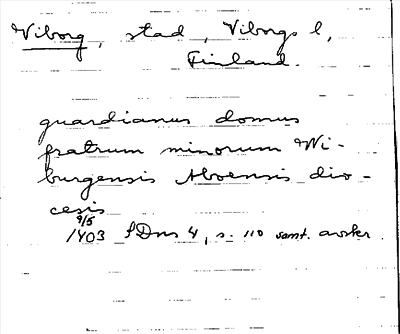 Viborg, stad, Viborgs l,
Finland.
guardianus domus
fratrum minorum Wi-
burgensis Aboensis dio-
cesis
9/5
1403 SDns 4, s. 110 samt. avskr.